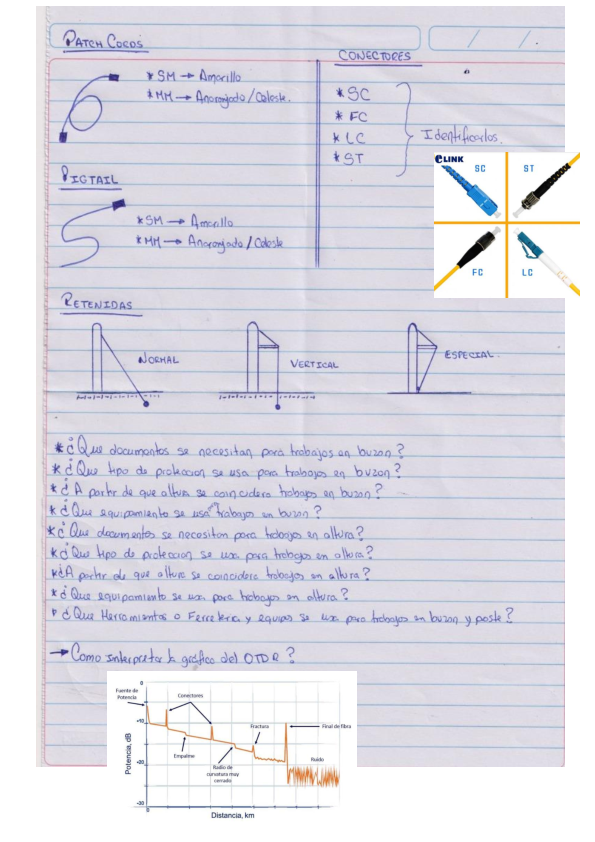 PATCH CORDS
* SM → Amarillo
* MM → Anaranjado/Celeste.
CONECTORES
* SC
* FC
* LC
* ST
Identificarlos.
ELINK
SC
ST
FC
LC
PIGTAIL
* SM → Amarillo
* MM → Anaranjado/Celeste
RETENIDAS
NORMAL
VERTICAL
ESPECIAL.
* ¿Que documentos se necesitan para trabajos en buzon?
* ¿Que tipo de proteccion se usa para trabajos en buzon?
* ¿A partir de que altura se coincidera trabajos en buzon?
* ¿Que equipamiento se usa trabajos en buzon?
* ¿Que documentos se necesitan para trabajos en altura?
* ¿Que tipo de proteccion se usa para trabajos en altura?
* ¿A partir de que altura se coincidera trabajos en altura?
* ¿Que equipamiento se usa para trabajos en altura?
* ¿Que Herramientas o Ferreteria y equipos se usa para trabajos en buzon y poste?
→ Como interpretar la grafico del OTDR?
Fuente de Potencia
Conectores
Fractura
Final de fibra
Empalme
Radio de curvatura muy cerrado
Ruido
0
+10
+20
+30
Potencia, dB
0
Distancia, km